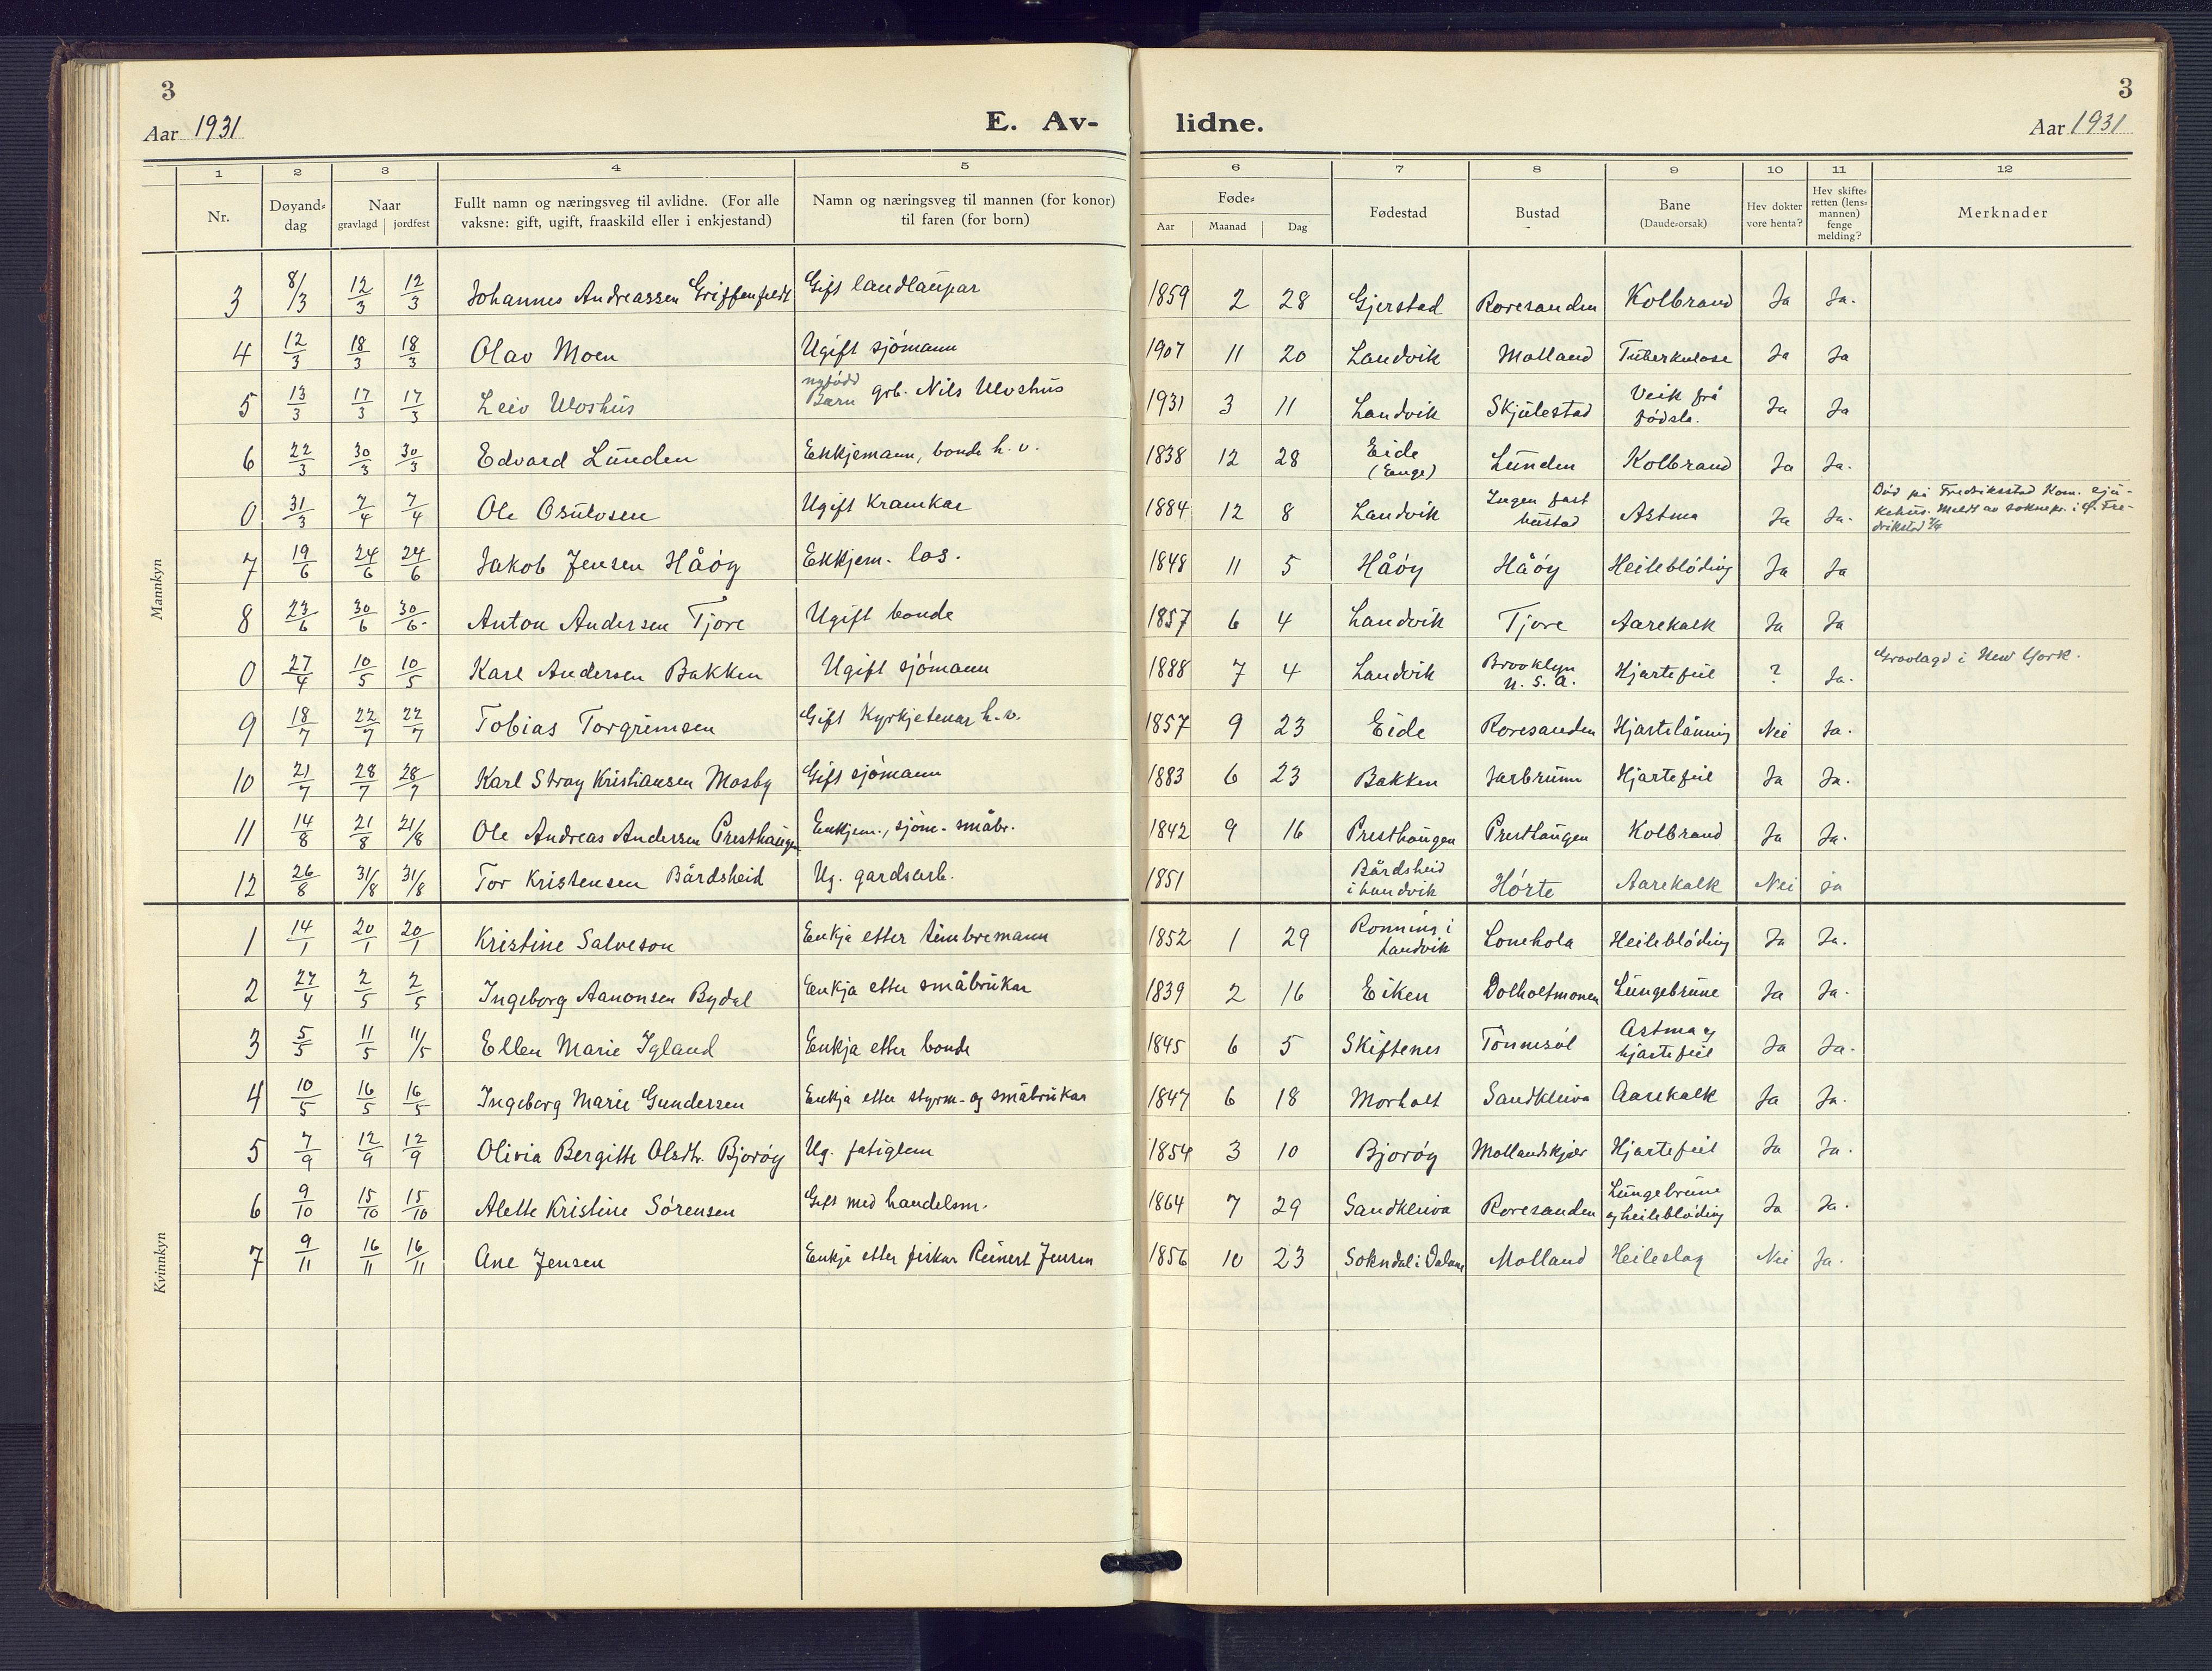 3
3
Aar 1931
E. Av-
lidne.
Aar 1931
1 2 3 4 5 6 7 8 9 10 11 12
Nr.
Døyand=
dag
Naar
gravlagd jordfest
Fullt namn og næringsveg til avlidne. (For alle
vaksne: gift, ugift, fraaskild eller i enkjestand)
Namn og næringsveg til mannen (for konor)
til faren (for born)
Føde=
Aar Maanad Dag
Fødestad
Bustad
Bane
(Daude=orsak)
Hev dokter
vore henta?
Hev skifte=
retten (lens=
mannen)
fenge
melding?
Merknader
Mannkyn
3 8/3 12/3 12/3 Johannes Andreassen Griffenfeldt Gift landlaupar 1859 2 28 Gjerstad Roresanden Kolbrand Ja Ja.
4 12/3 18/3 18/3 Olav Moen Ugift sjömann 1907 11 20 Landvik Molland Tuberkulose Ja Ja
5 13/3 17/3 17/3 Leiv Uloshus nyfödd Barn grb. Nils Uloshus 1931 3 11 Landvik Skjulestad Veik frå födsla. Ja Ja
6 22/3 30/3 30/3 Edvard Lunden Enkjemann, bonde h. v. 1838 12 28 Eide (Enge) Lunden Kolbrand Ja Ja.
0 31/3 7/4 7/4 Ole Osulvsen Ugift Kramkar 1884 12 8 Landvik Ingen fast bustad Astma Ja Ja. Död på Fredriksstad Kom. sju-
kehus. Meldt av soknepr. i Ö. Fre-
drikstad
7 19/6 24/6 24/6 Jakob Jensen Håöy Enkjem. los. 1848 11 5 Håöy Håöy Heileblöding Ja Ja
8 23/6 30/6 30/6 Anton Andersen Tjore Ugift bonde 1857 6 4 Landvik Tjore Aarekalk Ja Ja
0 27/4 10/5 10/5 Karl Andersen Bakken Ugift sjömann 1888 7 4 Landvik Brooklyn U. S. A. Hjartefeil ? Ja. Gravlagd i New York.
9 18/7 22/7 22/7 Tobias Torgrimsen Gift Kyrkjetenar h. v. 1857 9 23 Eide Roresanden Hjartelāming Nei Ja.
10 21/7 28/7 28/7 Karl Stray Kristiansen Mosby Gift sjömann 1883 6 23 Bakken Jarbrunn Hjartefeil Ja Ja.
11 14/8 21/8 21/8 Ole Andreas Andersen Presthaugen Enkjem., sjöm. småbr. 1842 9 16 Presthaugen Presthaugen Kolbrand Ja Ja.
12 26/8 31/8 31/8 Tor Kristensen Bårdsheid Ug. gardsarb. 1851 Bårdsheid i Landvik Hörte Aarekalk Nei ja
Kvinnkyn
1 14/1 20/1 20/1 Kristine Salveson Enkja etter timbremann 1852 1 29 Ronning i Landvik Lonehola Heileblöding Ja Ja.
2 27/4 2/5 2/5 Ingeborg Aanonsen Bydal Enkja etter småbrukar 1839 2 16 Eiken Dolholtmonen Lungebrune Ja Ja.
3 5/5 11/5 11/5 Ellen Marie Igland Enkja etter bonde 1845 6 5 Skiftenes Tönnesöl Astma og hjartefeil Ja Ja.
4 10/5 16/5 16/5 Ingeborg Marie Gundersen Enkja etter styrm- og småbrukar 1847 6 18 Morholt Sandkleiva Aarekalk Ja Ja.
5 7/9 12/9 12/9 Olivia Bergitte Olsdtr. Bjoröy Ug. fatiglem 1854 3 10 Bjoröy Mollandskjær Hjartefeil Ja Ja.
6 9/10 15/10 15/10 Alette Kristine Sörensen Gift med handelsm. 1864 7 29 Sandkleiva Roresanden Lungebrune og heileblöding Ja Ja.
7 9/11 16/11 16/11 Ane Jensen Enkja etter fiskar Reinert Jensen 1856 10 23 Sokndal i Dalane Molland Heileslag Nei Ja.